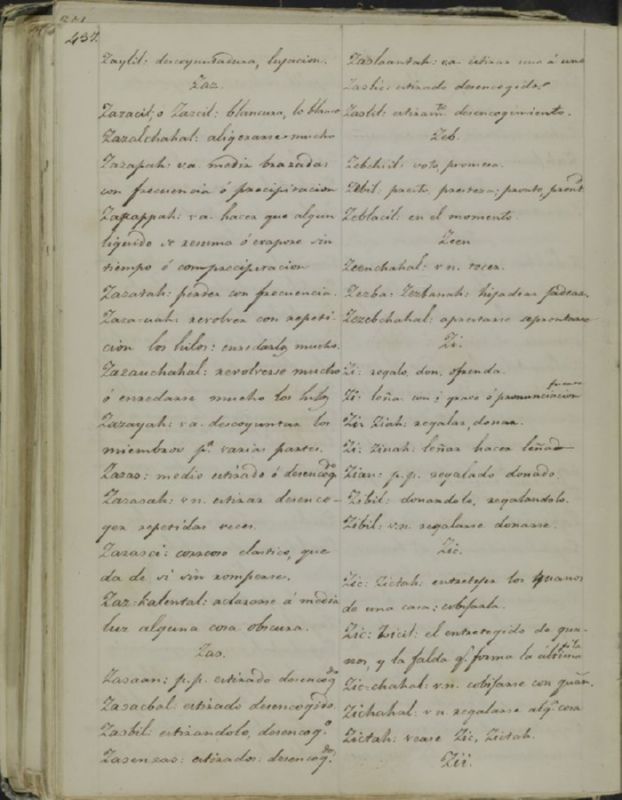 437.
Zaylil: descoyuntadura, lujacion.
Zaz.
Zazacil; o Zazcil: blancura, lo blanco
Zazalchahal: aligerarse mucho
Zazapah: va. medir brazadas
con frecuencia ó precipitacion
Zazappah: va. hacer que algun
liquido se resuma ó evapore sin
tiempo ó con precipitacion
Zazatah: perder con frecuencia.
Zaza-uah: revolver con repeti-
cion los hilos: enredarlos mucho.
Zazauchahal: revolverse mucho
ó enredarse mucho los hilos
Zazayah: va. descoyuntar los
miembros pr. varias partes.
Zazaz: medio estirado ó desencogdo
Zazazah: vn. estirar desenco-
ger repetidas veces.
Zazazci: correoso elastico, que
da de si sin romperse.
Zaz-halental: aclararse á media
luz alguna cosa obscura.
Zaz.
Zazaan: p.p. estirado desencogdo
Zazacbal: estirado desencogido.
Zazbil: estirandolo, desencogo.
Zazenzaz: estirados: desencogdo.
Zazlaantah: va. estirar uno á uno
Zazlic: estirado desencogido.
Zazlil: estiramto. desencogimiento.
Zeb.
Zebchiil: voto, promesa.
Zebil: presto, presteza; pronto, pront
Zeblacil: en el momento.
Zeen
Zeenchahal: vn. tocer.
Zezba: Zezbanah: hijadear
Zezebchahal: aprestarse apresurarse
Zi.
Zi: regalo, don, ofrenda.
Zi: leña con i grave ó pronunciacion
fuerte
Zi: Ziah: regalar, donar.
Zi: Zinah: leñar hacer leña
Zian: p.p. regalado donado.
Zibil: donandolo, regalandolo.
Zibil: vn. regalarse donarse.
Zic.
Zic: Zictah: entretejer los guanos
de una casa; cobijarla.
Zic: Zicil: el entretegido de gua-
nos, y la falda q. forma la ultima
Zic-chahal: vn. cobijarse con guan.
Zichahal: vn regalarse alga. cosa
Zictah: vease Zic, Zictah.
Zii.